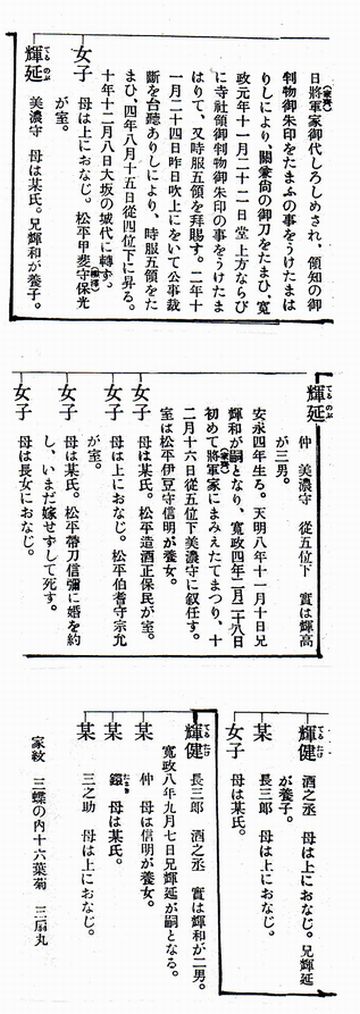 日將軍家御代しろしめされ、領知の御
(家齊)
判物御朱印をたまふの事をうけたまは
りしにより、關兼尙の御刀をたまひ、寛
政元年十一月二十二日堂上方ならび
に寺社領御判物御朱印の事をうけたま
はりて、又時服五領を拜賜す。二年十
一月二十四日昨日吹上にをいて公事裁
斷を台聽ありしにより、時服五領をた
まひ、四年八月十五日從四位下に昇る。
十年十二月八日大坂の城代に轉ず。
女子 母は上におなじ。松平甲斐守保光
が室。
輝延 美濃守 母は某氏。兄輝和が養子。
てるのぶ
輝延 仲 美濃守 從五位下 實は輝高
てるのぶ
が三男。
安永四年生る。天明八年十一月十日兄
輝和が嗣となり、寛政四年二月二十八日
初めて將軍家にまみえたてまつり、十
(家齊)
二月十六日從五位下美濃守に叙任す。
室は松平伊豆守信明が養女。
女子 母は某氏。松平造酒正保民が室。
女子 母は上におなじ。松平伯耆守宗允
が室。
女子 母は某氏。松平帶刀信彌に婚を約
し、いまだ嫁せずして死す。
女子 母は長女におなじ。
輝健 酒之丞 母は上におなじ。兄輝延
てるたけ
が養子。
某 長三郎 母は上におなじ。
女子 母は某氏。
輝健 長三郎 酒之丞 實は輝和が二男。
てるたけ
寛政八年九月七日兄輝延が嗣となる。
某 仲 母は信明が養女。
某 鐺 母は某氏。
某 三之助 母は上におなじ。
家紋 三蝶の内十六葉菊 三扇丸